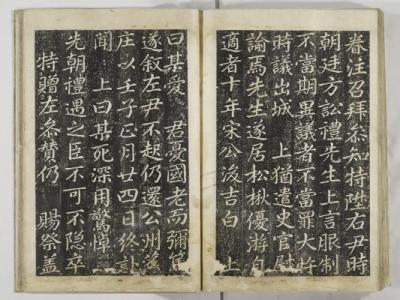 眷注召拜叅知特陞右尹時
朝廷方訟禮先生上言服制
不當期異議者不當罪大忤
時議出城 上猶遣史官慰
諭焉先生遂居松楸優游自
適者十年宋公浚吉白 上
曰其愛 君憂國老而彌篤
遂叙左尹不起仍還公州舊
庄以壬子正月廿四日終訃
聞 上曰其死深用驚悼
先朝禮遇之臣不可不隱卒
特贈左叅贊仍 賜祭盖